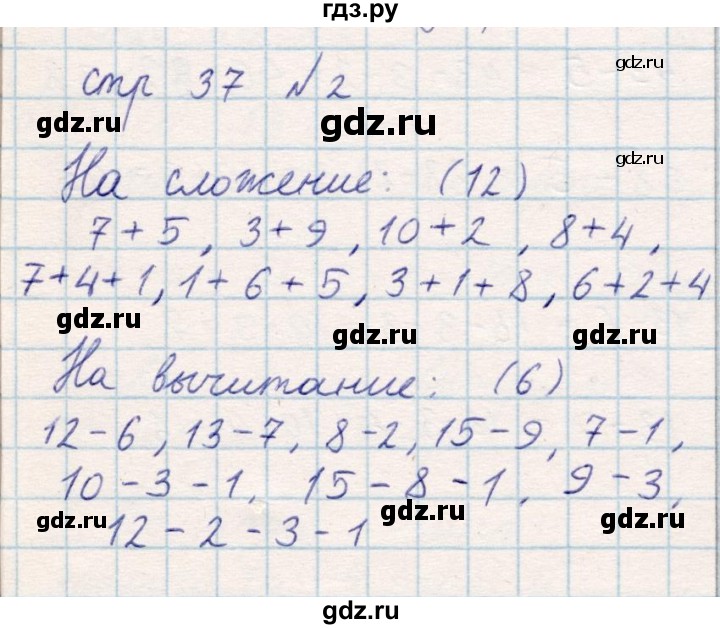 гдз.ру
стр 37 №2
gdz.ru
gdz.ru
gdz.ru
На сложение: (12)
gdz.ru
7+5, 3+9, 10+2, 8+4,
7+4+1, 1+6+5, 3+1+8, 6+2+4
gdz.ru
gdz.ru
gdz.ru
На вычитание: (6)
gdz.ru
12-6, 13-7, 8-2, 15-9, 7-1,
10-3-1, 15-8-1, 9-3,
gdz.ru
gdz.ru
gdz.ru
12-2-3-1
gdz.ru